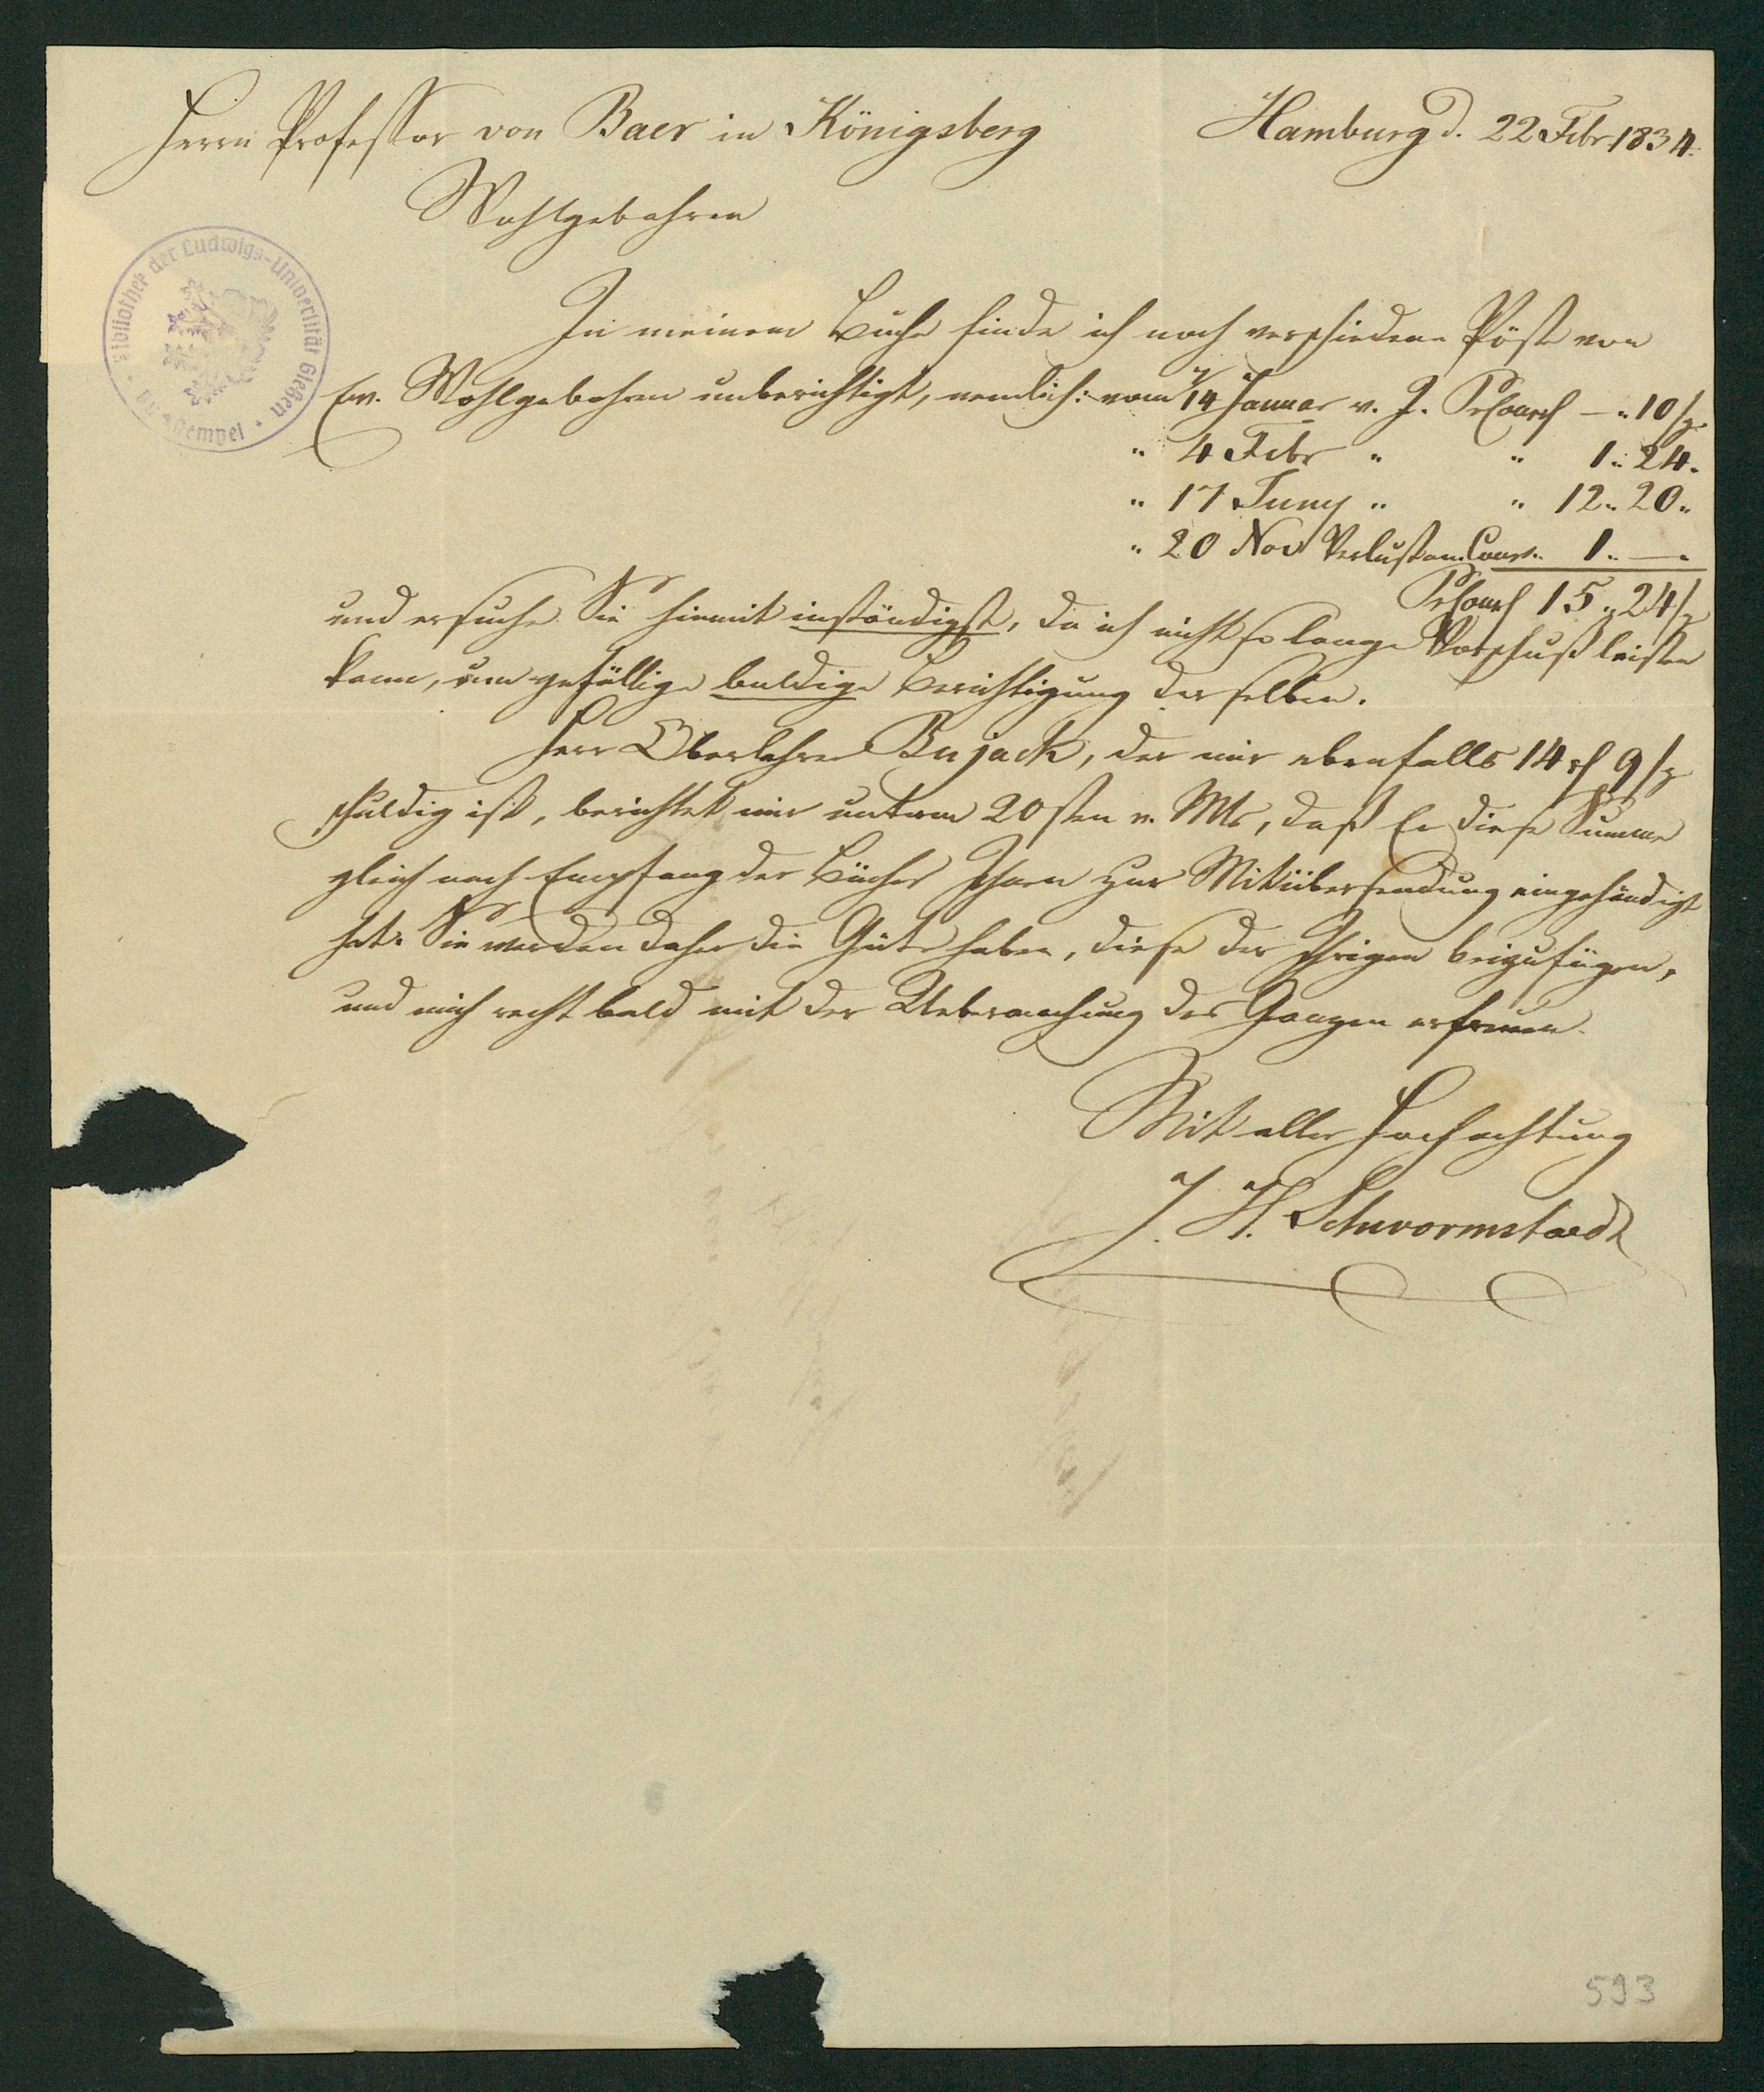 Herrn Professor von Baer in Königsberg Hamburg d. 22 Febr 1834.
Wohlgebohren
Bibliothek der Ludwigs-Universität Gießen
In meinem Buche finde ich noch verschiedene Pöste von
Ew. Wohlgebohren unberichtigt, nemlich: vom 14 Januar v. J. PrCour — " 10 Sg.
" 4 Febr " " 1 " 24 "
" 17 Juny " " 12 " 20 "
" 20 Nov Verlust am Cour " 1 " — "
PrCour 15 " 24 Sg
und ersuche Sie hiemit inständigst, da ich nicht so lange Vorschuß leisten
kann, um gefällige baldige Berichtigung derselben.
Herr Oberlehrer Bujack, der mir ebenfalls 14 rf 9 Sg
schuldig ist, berichtet mir unterm 20sten v. Mts, daß Er diese Summe
gleich nach Empfang der Bücher Ihnen zur Mitübersendung eingehändigt
hat. Sie werden daher die Güte haben, diese der Ihrigen beizufügen,
und mich recht bald mit der Uebermachung des Ganzen erfreuen.
Mit aller Hochachtung
J. H. Schwormstaedt
593